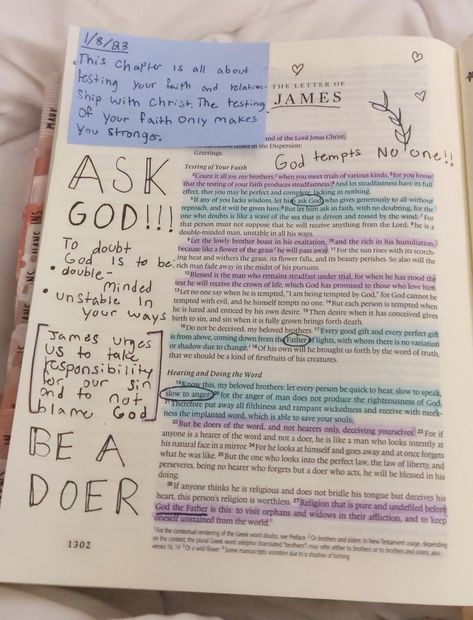 1/8/23
This Chapter is all about
testing your faith and relation-
ship with Christ. The testing
of your faith only makes
you stronger.
THE LETTER OF
JAMES
and of the Lord Jesus Christ,
in the Dispersion:
Greetings.
God tempts No one!!
ASK
GOD!!!
To doubt
God is to be:
• double-
minded
• unstable In
your ways
James urges
us to take
responsibility
for our sin
and to not
blame God
BE A
DOER
Testing of Your Faith
2Count it all joy, my brothers, when you meet trials of various kinds, 3for you know
that the testing of your faith produces steadfastness. 4And let steadfastness have its full
effect, that you may be perfect and complete, lacking in nothing.
5If any of you lacks wisdom, let him ask God, who gives generously to all without
reproach, and it will be given him. 6But let him ask in faith, with no doubting, for the
one who doubts is like a wave of the sea that is driven and tossed by the wind. 7For
that person must not suppose that he will receive anything from the Lord; 8he is a
double-minded man, unstable in all his ways.
9Let the lowly brother boast in his exaltation, 10and the rich in his humiliation,
because like a flower of the grass he will pass away. 11For the sun rises with its scorch-
ing heat and withers the grass; its flower falls, and its beauty perishes. So also will the
rich man fade away in the midst of his pursuits.
12Blessed is the man who remains steadfast under trial, for when he has stood the
test he will receive the crown of life, which God has promised to those who love him.
13Let no one say when he is tempted, "I am being tempted by God," for God cannot be
tempted with evil, and he himself tempts no one. 14But each person is tempted when
he is lured and enticed by his own desire. 15Then desire when it has conceived gives
birth to sin, and sin when it is fully grown brings forth death.
16Do not be deceived, my beloved brothers. 17Every good gift and every perfect gift
is from above, coming down from the Father of lights, with whom there is no variation
or shadow due to change. 18Of his own will he brought us forth by the word of truth,
that we should be a kind of firstfruits of his creatures.
Hearing and Doing the Word
19Know this, my beloved brothers: let every person be quick to hear, slow to speak,
slow to anger; 20for the anger of man does not produce the righteousness of God.
21Therefore put away all filthiness and rampant wickedness and receive with meek-
ness the implanted word, which is able to save your souls.
22But be doers of the word, and not hearers only, deceiving yourselves. 23For if
anyone is a hearer of the word and not a doer, he is like a man who looks intently at
his natural face in a mirror. 24For he looks at himself and goes away and at once forgets
what he was like. 25But the one who looks into the perfect law, the law of liberty, and
perseveres, being no hearer who forgets but a doer who acts, he will be blessed in his
doing.
26If anyone thinks he is religious and does not bridle his tongue but deceives his
heart, this person's religion is worthless. 27Religion that is pure and undefiled before
God the Father is this: to visit orphans and widows in their affliction, and to keep
oneself unstained from the world.
1 For the contextual rendering of the Greek word doulos, see Preface 2 Or brothers and sisters. In New Testament usage, depending
on the context, the plural Greek word adelphoi (translated "brothers") may refer either to brothers or to brothers and sisters; also
verses 16, 19 3 Or a wild flower 4 Some manuscripts variation due to a shadow of turning
1302